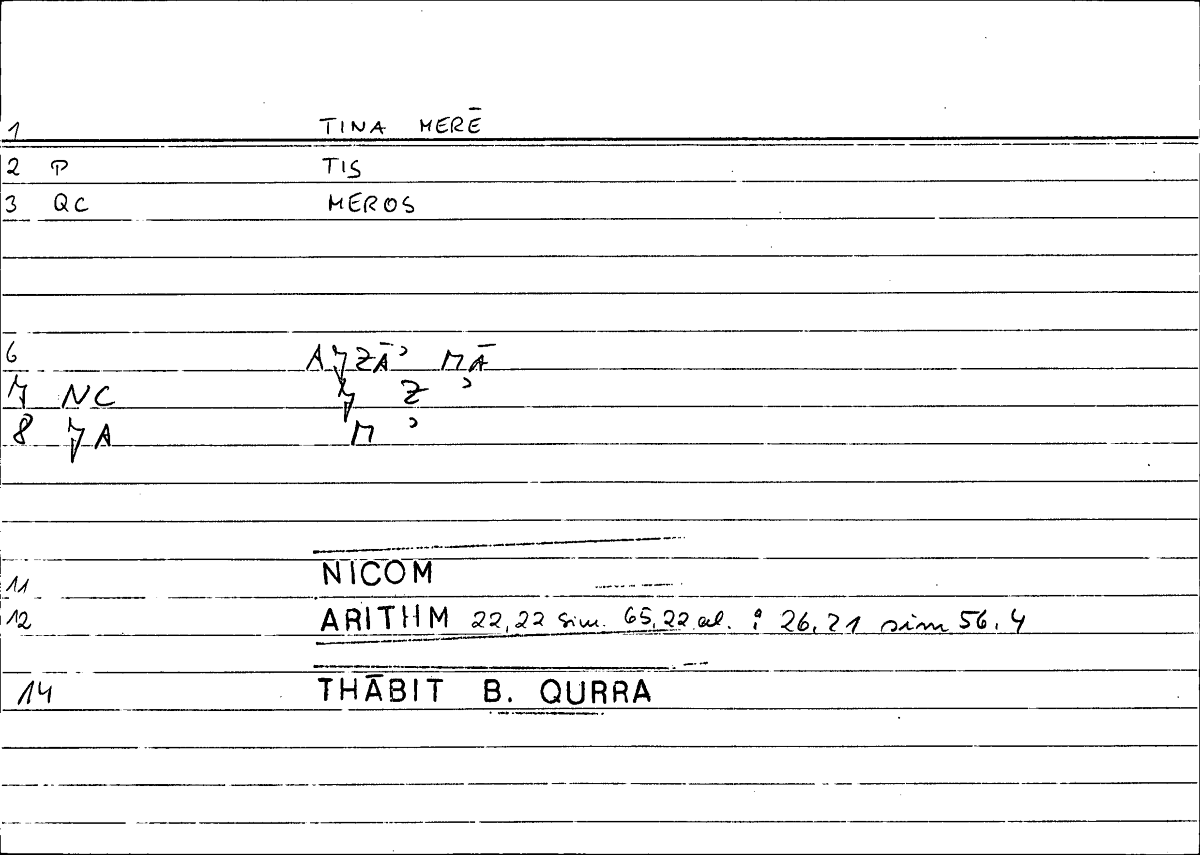 1 TINA MERĒ
2 P TIS
3 QC MEROS
6 AʒZĀʾ MĀ
7 NC ʒ Z ʾ
8 ʒA M ʾ
11 NICOM
12 ARITHM 22,22 sim. 65,22 al. : 26,21 sim 56,4
14 THĀBIT B. QURRA